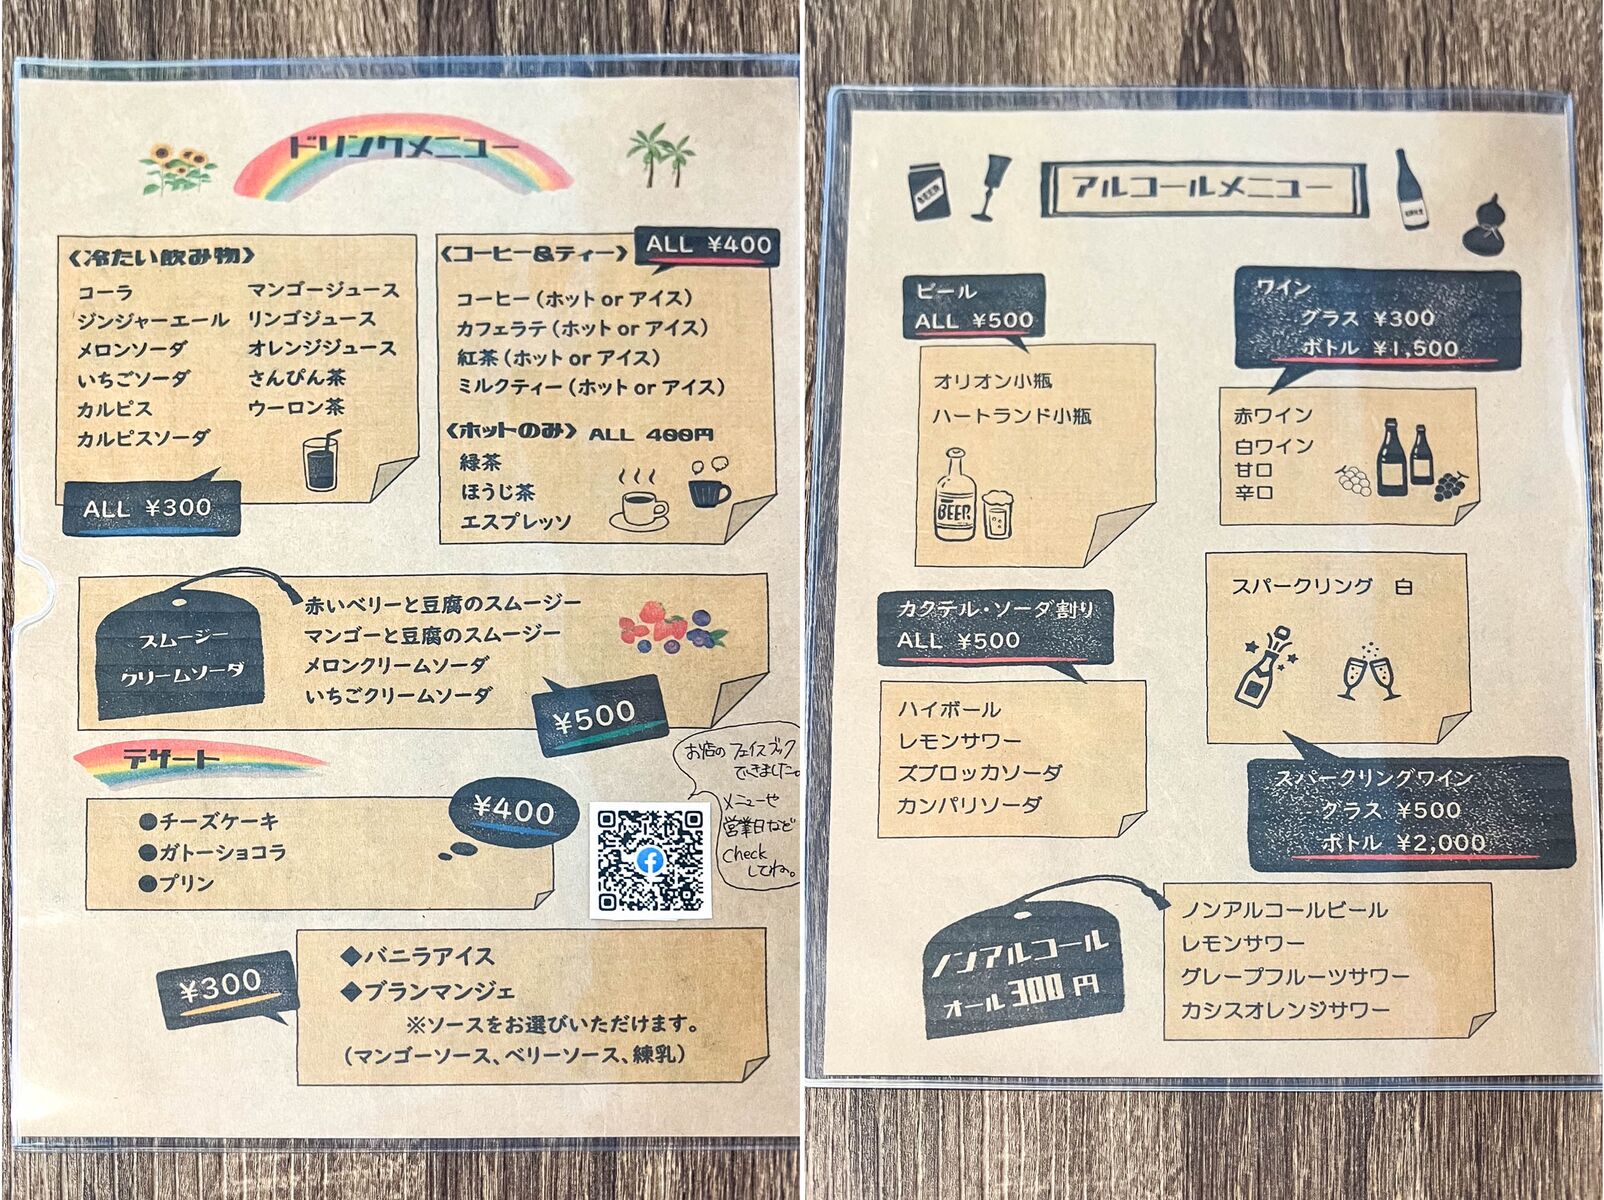 ドリンクメニュー
〈冷たい飲み物〉
コーラ
ジンジャーエール
メロンソーダ
いちごソーダ
カルピス
カルピスソーダ
マンゴージュース
リンゴジュース
オレンジジュース
さんぴん茶
ウーロン茶
ALL ¥300
〈コーヒー&ティー〉
ALL ¥400
コーヒー(ホット or アイス)
カフェラテ(ホット or アイス)
紅茶(ホット or アイス)
ミルクティー(ホット or アイス)
〈ホットのみ〉 ALL 400円
緑茶
ほうじ茶
エスプレッソ
スムージー
クリームソーダ
赤いベリーと豆腐のスムージー
マンゴーと豆腐のスムージー
メロンクリームソーダ
いちごクリームソーダ
¥500
デザート
●チーズケーキ
●ガトーショコラ
●プリン
¥400
お店のフェイスブック
できました。
メニューや
営業日など
check
してね。
¥300
◆バニラアイス
◆ブランマンジェ
※ソースをお選びいただけます。
(マンゴーソース、ベリーソース、練乳)
アルコールメニュー
BEER
ビール
ALL ¥500
オリオン小瓶
ハートランド小瓶
BEER
ワイン
グラス ¥300
ボトル ¥1,500
赤ワイン
白ワイン
甘口
辛口
カクテル・ソーダ割り
ALL ¥500
ハイボール
レモンサワー
ズブロッカソーダ
カンパリソーダ
スパークリング 白
スパークリングワイン
グラス ¥500
ボトル ¥2,000
ノンアルコール
オール 300 円
ノンアルコールビール
レモンサワー
グレープフルーツサワー
カシスオレンジサワー